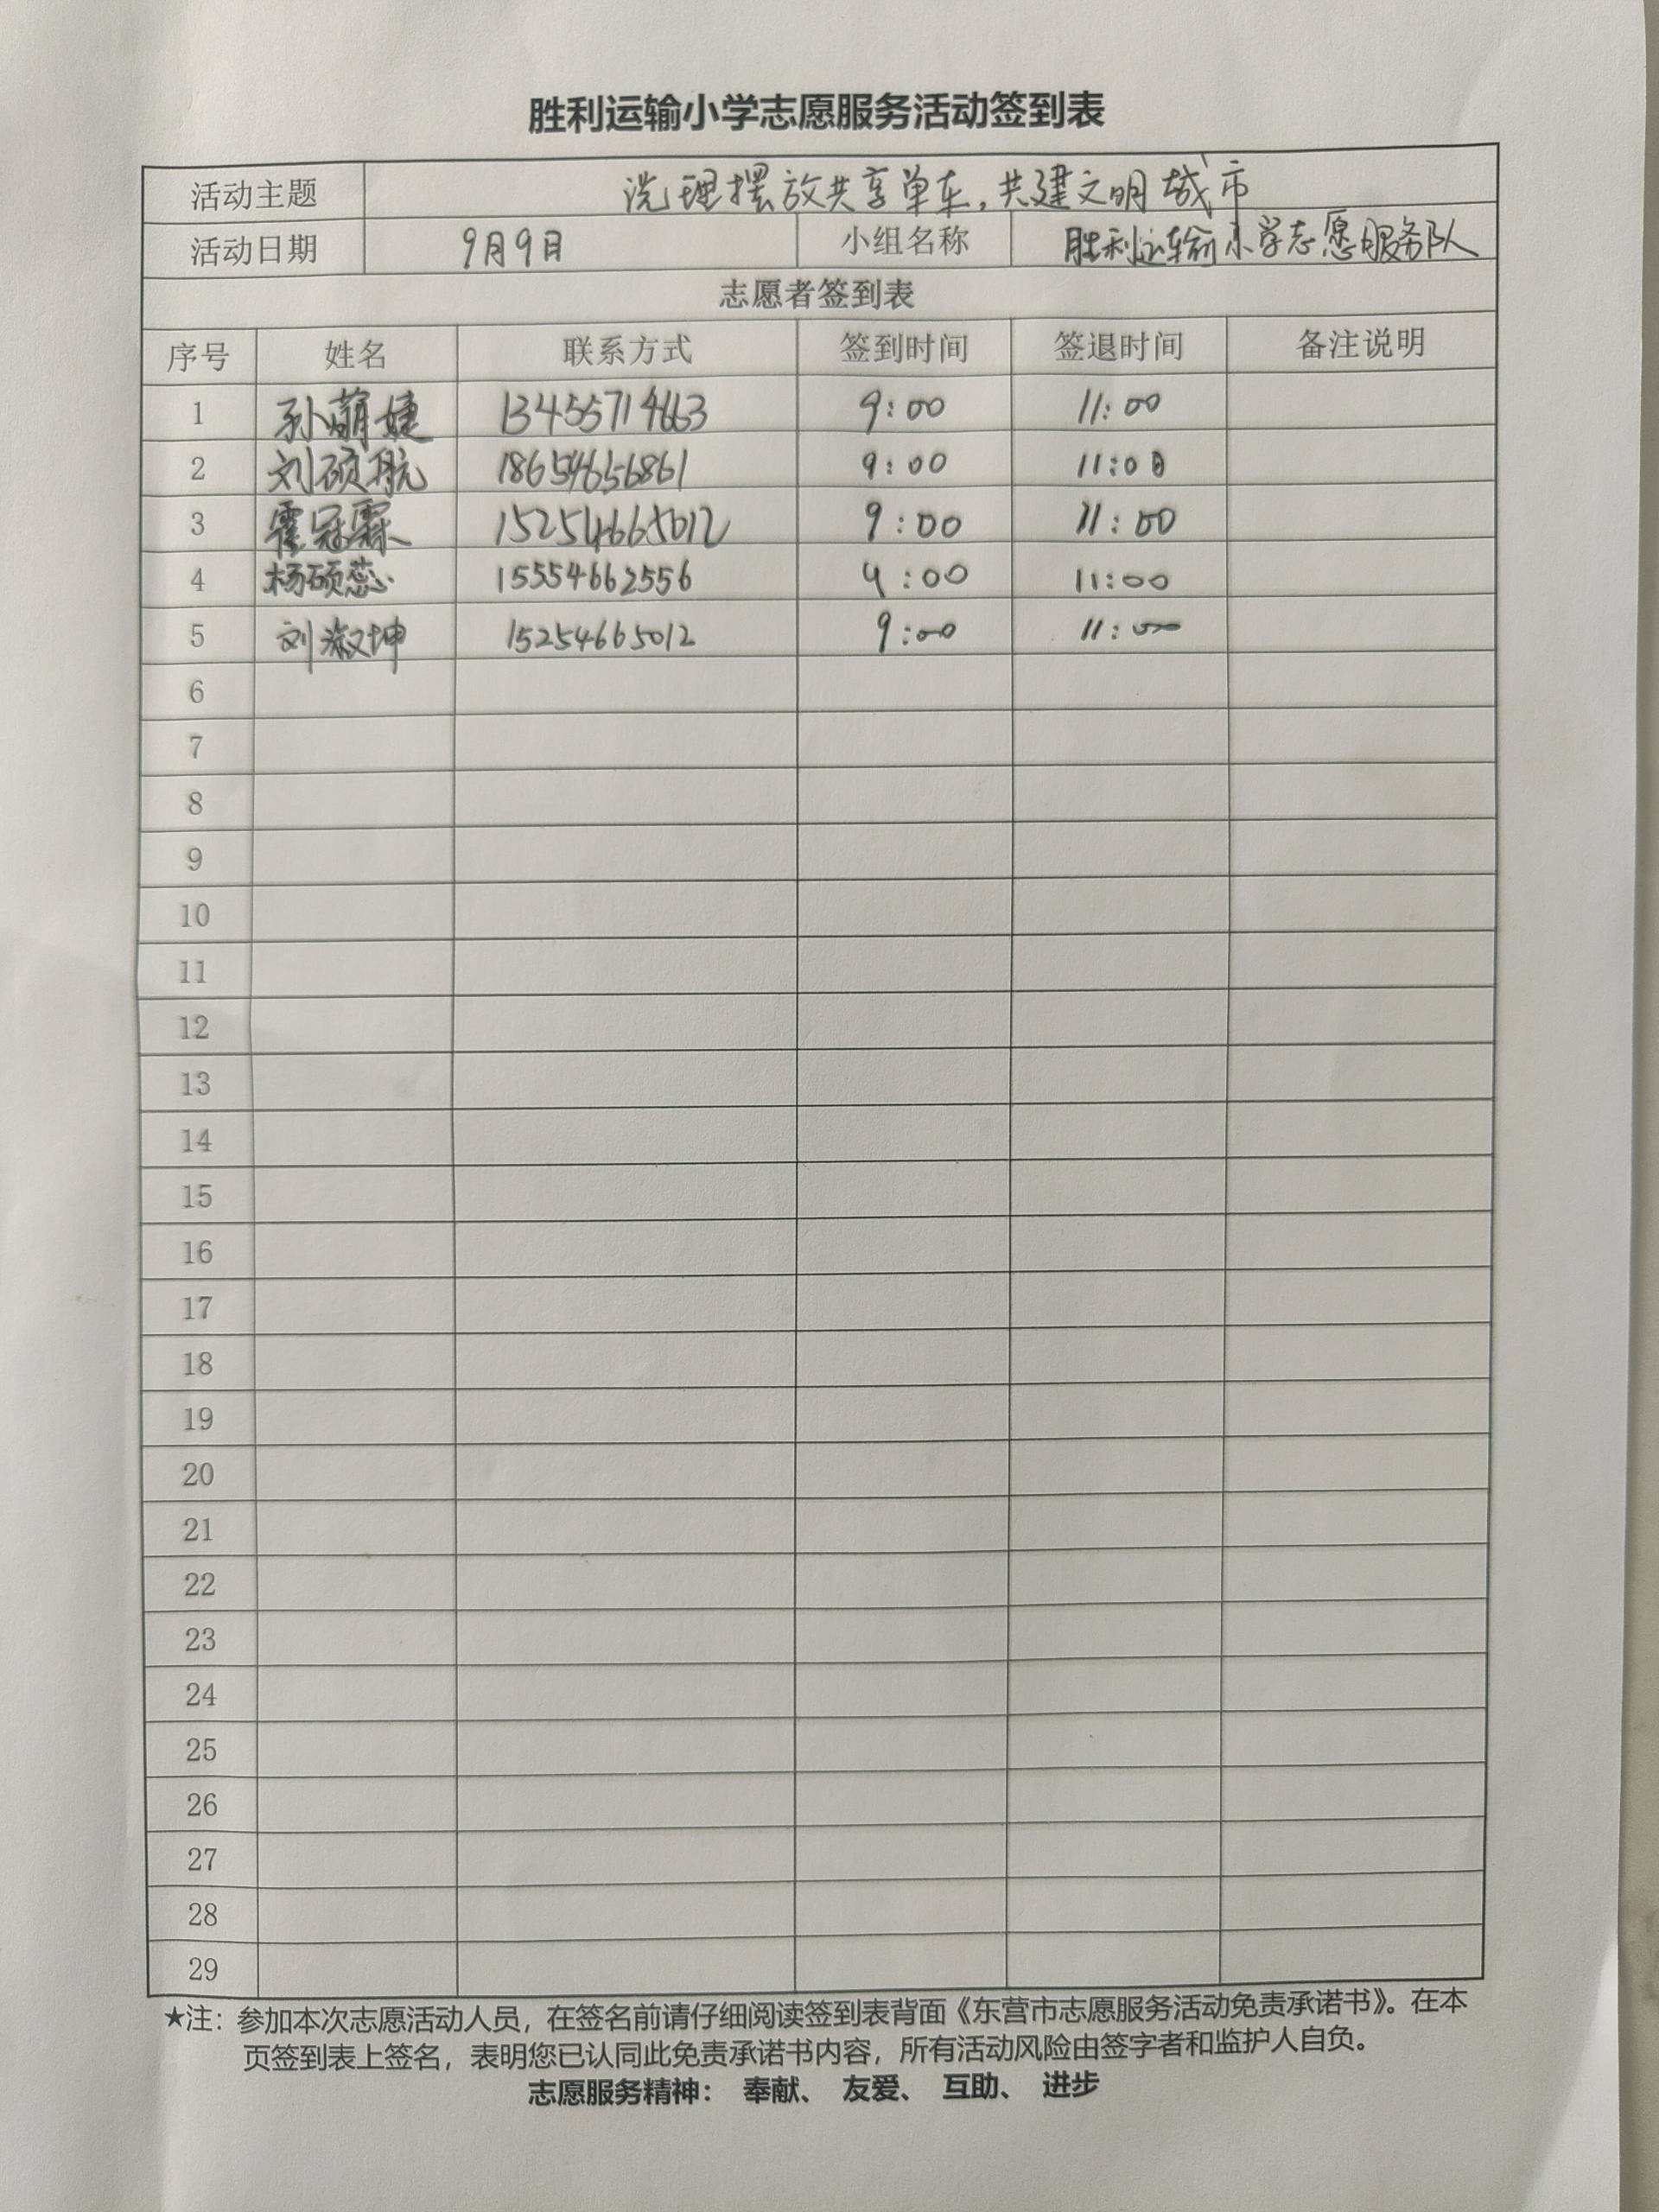 胜利运输小学志愿服务活动签到表
活动主题 洗理摆放共享单车,共建文明城市
活动日期 9月9日 小组名称 胜利运输小学志愿服务队
志愿者签到表
序号 姓名 联系方式 签到时间 签退时间 备注说明
1 孙萌婕 13455714663 9:00 11:00
2 刘硕航 18654656861 9:00 11:00
3 霍冠霖 15254665012 9:00 11:00
4 杨硕蕊 15554662556 9:00 11:00
5 刘淑坤 15254665012 9:00 11:00
6
7
8
9
10
11
12
13
14
15
16
17
18
19
20
21
22
23
24
25
26
27
28
29
★注：参加本次志愿活动人员，在签名前请仔细阅读签到表背面《东营市志愿服务活动免责承诺书》。在本
页签到表上签名，表明您已认同此免责承诺书内容，所有活动风险由签字者和监护人自负。
志愿服务精神： 奉献、 友爱、 互助、 进步